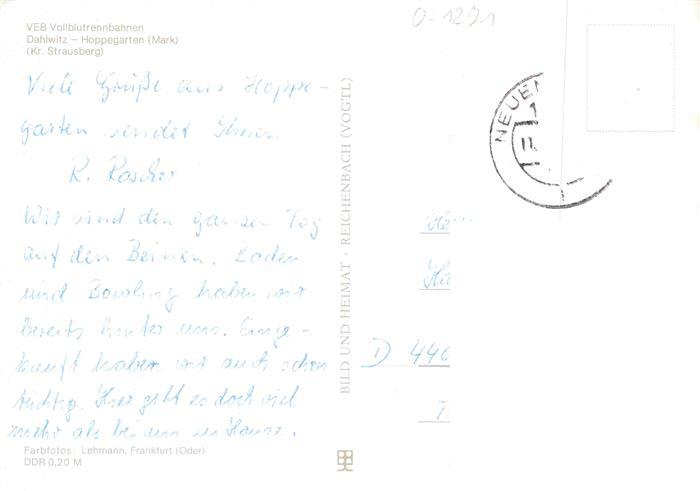 VEB Vollblutrennbahnen
Dahlwitz – Hoppegarten (Mark)
(Kr. Strausberg)
0-1291
Viele Grüße aus Hoppe-
garten sendet Ihnen
R. Rascher
Wir sind den ganzen Tag
auf den Beinen. Baden
und Bowling haben wir
bereits hinter uns. Einge-
kauft haben wir auch schon
tüchtig. Hier gibt es doch viel
mehr als bei uns zu Hause.
Farbfotos: Lehmann, Frankfurt (Oder)
DDR 0,20 M
BILD UND HEIMAT · REICHENBACH (VOGTL)
NEUEN
D 440